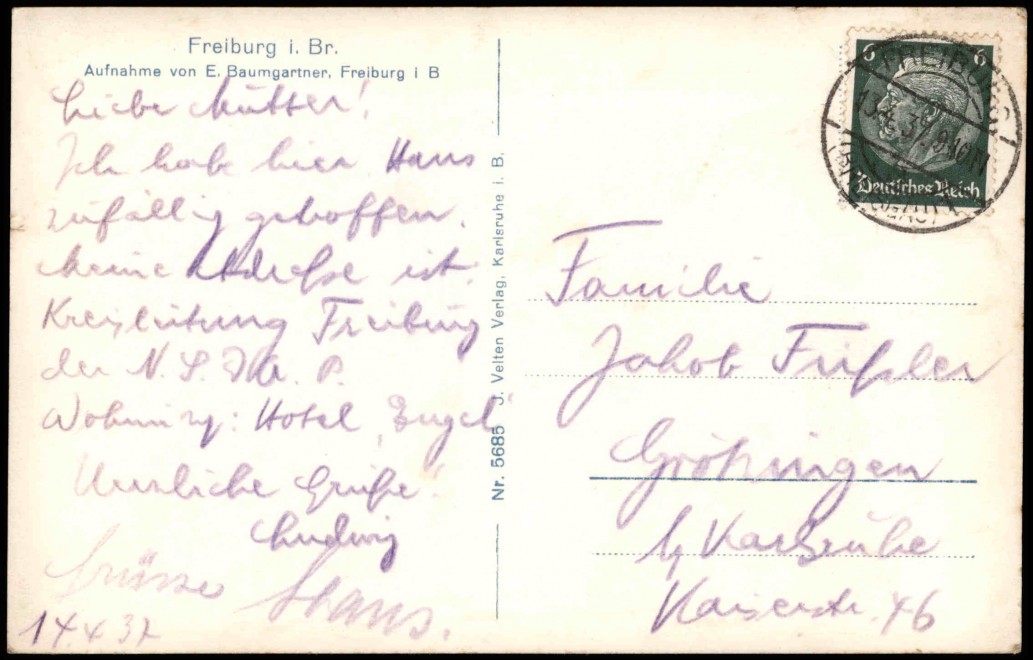 Freiburg i. Br.
Aufnahme von E. Baumgartner, Freiburg i B
Liebe Mutter!
Ich habe hier Hans
zufällig getroffen.
Meine Adresse ist:
Kreisleitung Freiburg
der N. S. D. A. P.
Wohnung: Hotel „Engel"
Herzliche Grüße!
Ludwig
Grüsse Hans.
14.4.37
Nr. 5685 J. Velten Verlag, Karlsruhe i. B.
6 6
Deutsches Reich
FREIBURG
Familie
Jakob Fißler
Grötzingen
b/ Karlsruhe
Kaiserstr. 46